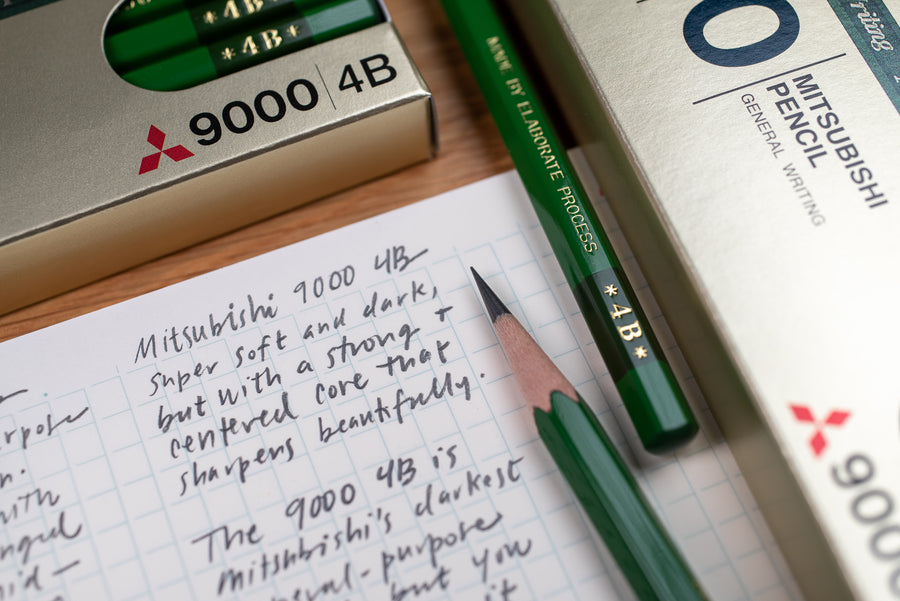 *4B*
*4B*
9000 4B
MADE BY ELABORATE PROCESS
*4B*
riting
MITSUBISHI
PENCIL
GENERAL WRITING
900
Mitsubishi 9000 4B
super soft and dark,
but with a strong +
centered core that
sharpens beautifully.
The 9000 4B is
Mitsubishi's darkest
eral-purpose
but you
it
rpose
n.
with